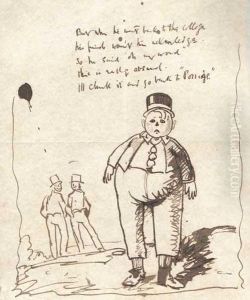 But when he went back to the College
his friends wouldn't him acknowledge
So he said oh my word
this is really absurd
I'll chuck it and go back to "Porridge"